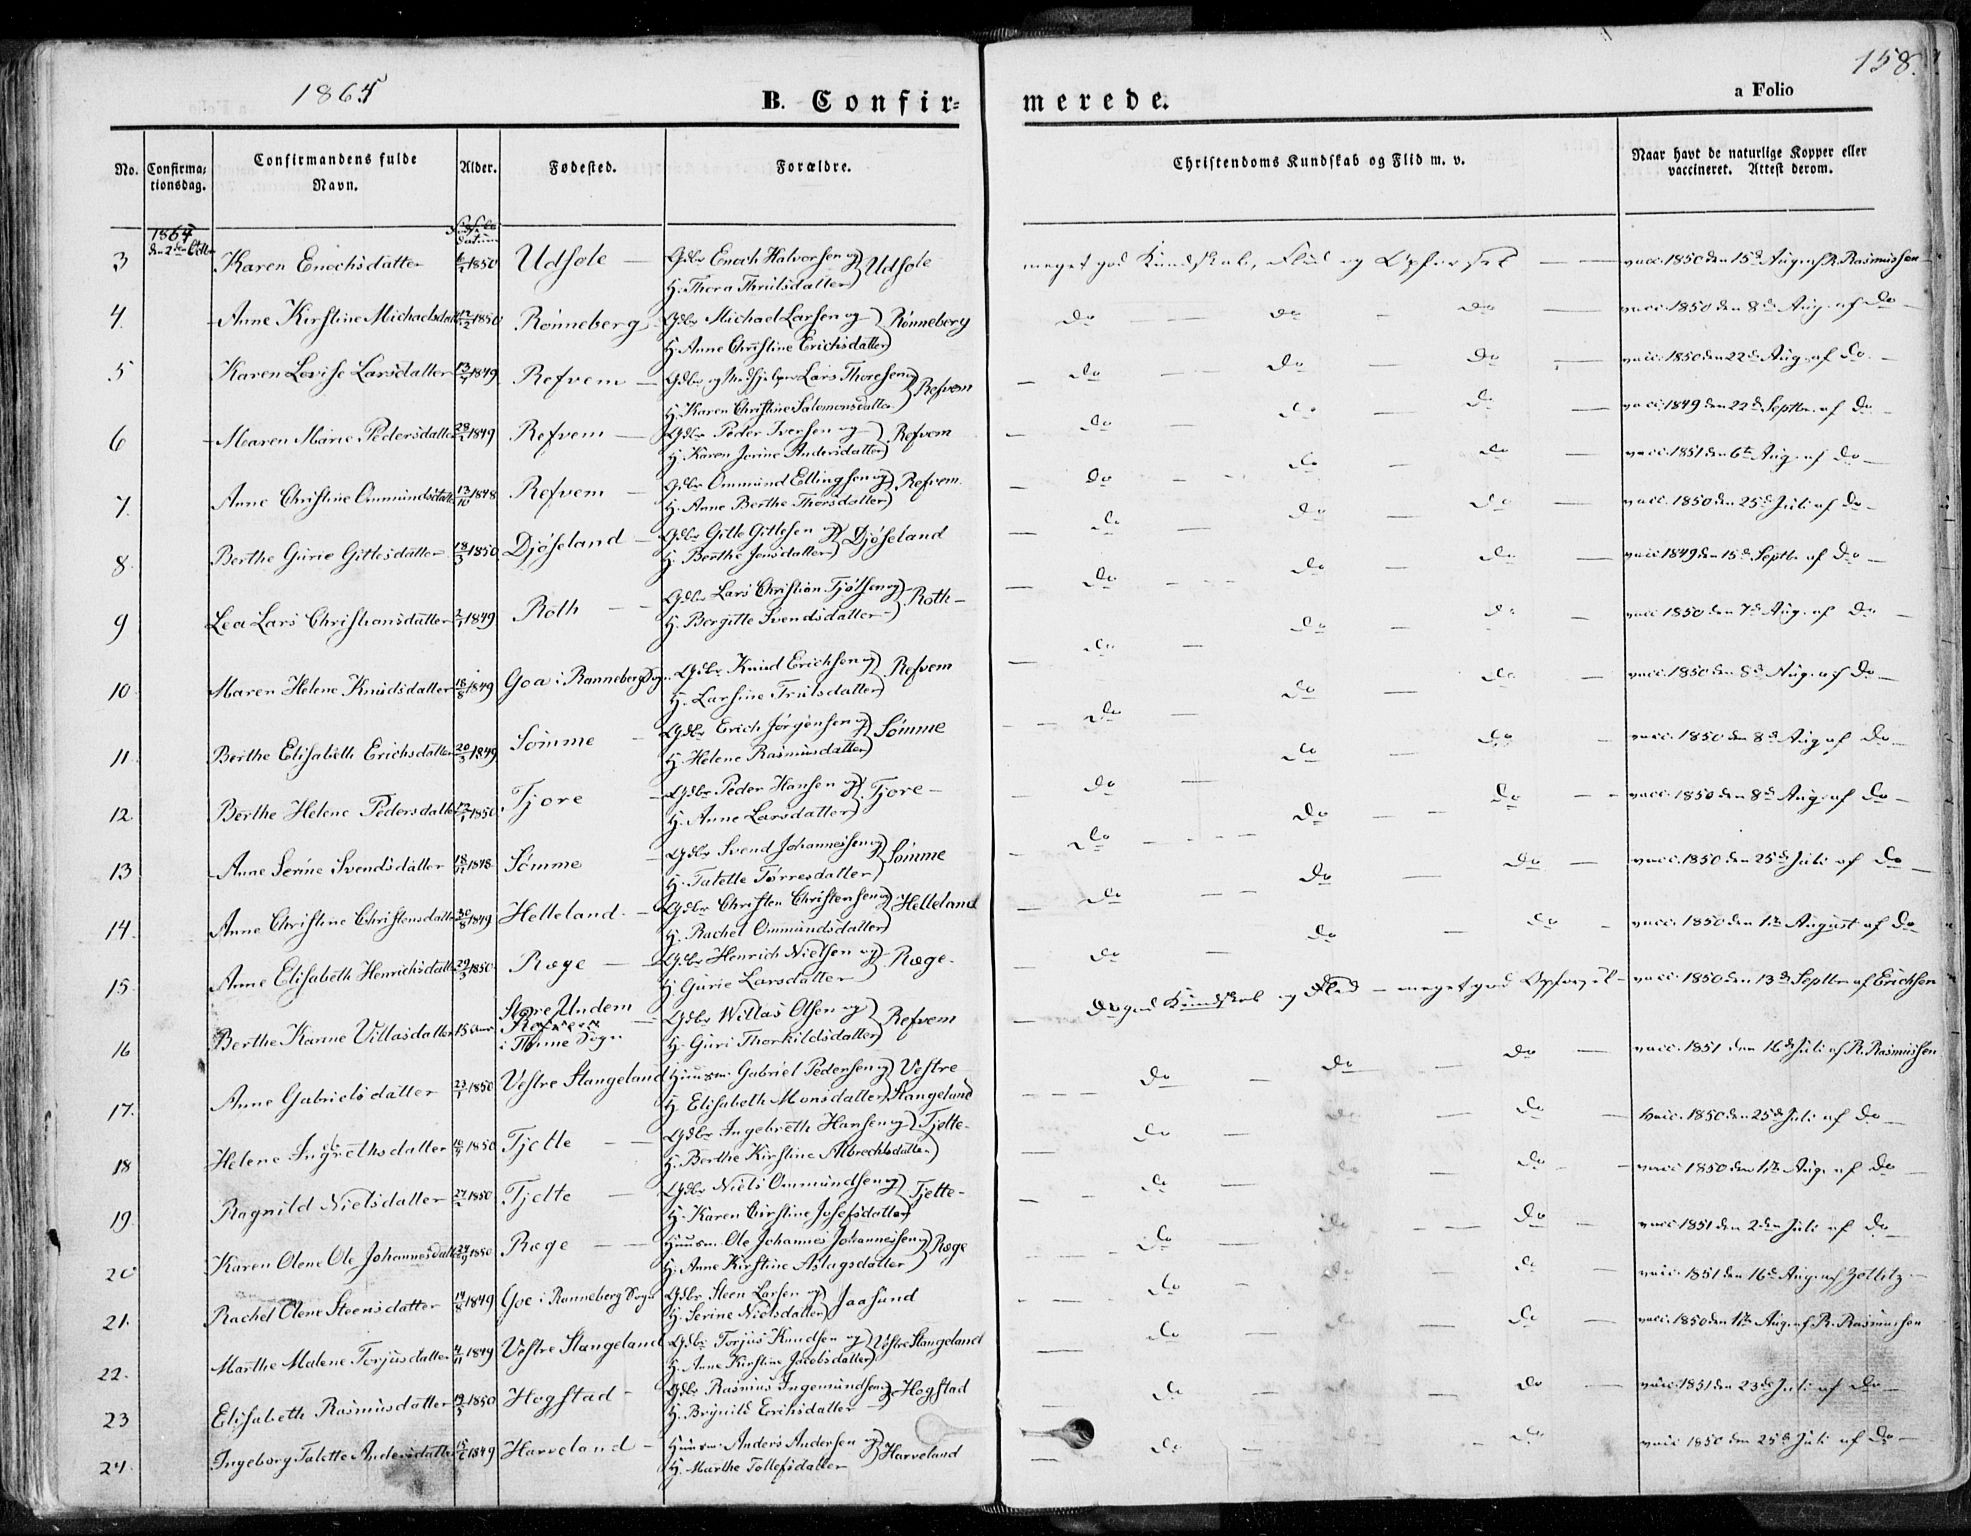 158.
1864
B. Confir=
merede.
a Folio
No. Confirma=tionsdag. Confirmandens fulde Navn. Alder. Fødested. Forældre. Christendoms Kundskab og Flid m. v. Naar havt de naturlige Kopper eller vaccineret. Attest derom.
1864
3 Karen Enochsdatter 1850 Udsole Gdbr Enoch Halvorsen og H. Thora Thrulsdatter Udsole meget god Kundskab, Flid og Opførsel vacc. 1850 den 15d Aug. af R. Rasmussen
4. Anne Kirstine Michaelsdatt 1850 Rønneberg Gdbr Michael Larsen og H. Anne Christine Erichsdatter Rønneberg do do do vacc. 1850 den 8d Aug. af do
5 Karen Lovise Larsdatter 1849 Refvem Gdbr og Medhjelper Lars Thoresen og H. Karen Christine Salomonsdatter Refvem do do do vacc. 1850 den 22d Aug. af do
6 Maren Marie Pedersdatter 1849 Refvem Gdbr Peder Iversen og H. Karen Jorine Andersdatter Refvem do do do vacc. 1849 den 22d Septbr. af do
7. Anne Christine Ommundsdatter 13/10 1848 Refvem Gdbr Ommund Ellingsen og H. Anne Berthe Thorsdatter Refvem do do do vacc. 1851 den 6te Aug. af do
8. Berthe Gurie Gitlesdatter 18/3 1850 Djøseland Gdbr Gitle Gitlesen og H. Berthe Jensdatter Djøseland do do do vacc. 1850 den 25d Juli af do
9 Lea Lars Christiansdatter 1849 Roth Gdbr Lars Christian Tjølsen og H. Bergitte Svendsdatter Roth do do do vacc. 1849 den 15d Septbr af do
10 Maren Helene Knudsdatter 18/8 1849 Goa i Ranneberg Sogn Gdbr Knud Erichsen og H. Larsine Trulsdatter Refvem do do do vacc. 1850 den 7d Aug. af do
11. Berthe Elisabeth Erichsdatter 20/3 1849 Sømme Gdbr Erich Jørgensen og H. Helene Rasmusdatter Sømme do do do vacc. 1850 den 8d Aug. af do
12 Berthe Helene Pedersdatter 1850 Tjore Gdbr Peder Hansen og H. Anne Larsdatter Tjore do do do vacc. 1850 den 8d Aug af do
13 Anne Serine Svendsdatter 1848 Sømme Gdbr Svend Johannessen og H. Talette Tørresdatter Sømme do do do vacc. 1850 den 8d Aug. af do
14. Anne Christine Christensdatter 30/8 1849 Helleland Gdbr Christen Christensen og H. Rachel Ommundsdatter Helleland do do do vacc. 1850 den 25d Juli af do
15 Anne Elisabeth Henrichsdatter 29/3 1850 Ræge Gdbr Henrich Nielsen og H. Gurie Larsdatter Ræge do do do vacc. 1850 den 1te August af do
16 Berthe Karine Villasdatter 15 Aar Store Undem i Thime Sogn Gdbr Willas Olsen og H. Guri Thorkildsdatter Refvem god Kundskab og Flid - meget god Opførsel vacc. 1850 den 13d Septbr af Erichsen
17. Anne Gabrielsdatter 1850 Vestre Stangeland Huusm. Gabriel Pedersen og H. Elisabeth Monsdatter Vestre Stangeland do do do vacc. 1851 den 16d Juli af R. Rasmussen
18 Helene Ingebrethsdatter 1850 Tjelte Gdbr Ingebreth Hansen og H. Berthe Kirstine Albrechtsdatter Tjelte do do do vacc. 1850 den 25d Juli af do
19. Ragnild Nielsdatter 1850 Tjelte Gdbr Niels Ommundsen og H. Karen Cirstine Josefsdatter Tjelte do do do vacc. 1850 den 1te Aug. af do
20 Karen Olene Ole Johannesdatter 1850 Ræge Huusm. Ole Johannes Johannessen og H. Anne Kirstine Aslagsdatter Ræge do do do vacc. 1851 den 2den Juli af do
21. Rachel Olene Steensdatter 1849 Goe i Ranneberg Sogn Gdbr Steen Larsen og H. Serine Nielsdatter Jaasund do do do vacc. 1851 den 16d Aug. af Zetlitz
22. Marthe Malene Torjusdatter 4/11 1849 Vestre Stangeland Gdbr Torjus Knudsen og H. Anne Kirstine Jacobsdatter Vestre Stangeland do do do vacc. 1850 den 1te Aug. af R. Rasmussen
23 Elisabeth Rasmusdatter 1850 Hogstad Gdbr Rasmus Ingemundsen og H. Brynild Erichsdatter Hogstad do do do vacc. 1851 den 23d Juli af do
24. Ingeborg Talette Andersdatter 1849 Harveland Huusm. Anders Andersen og H. Marthe Tollefsdatter Harveland do do do vacc. 1850 den 25d Juli af do